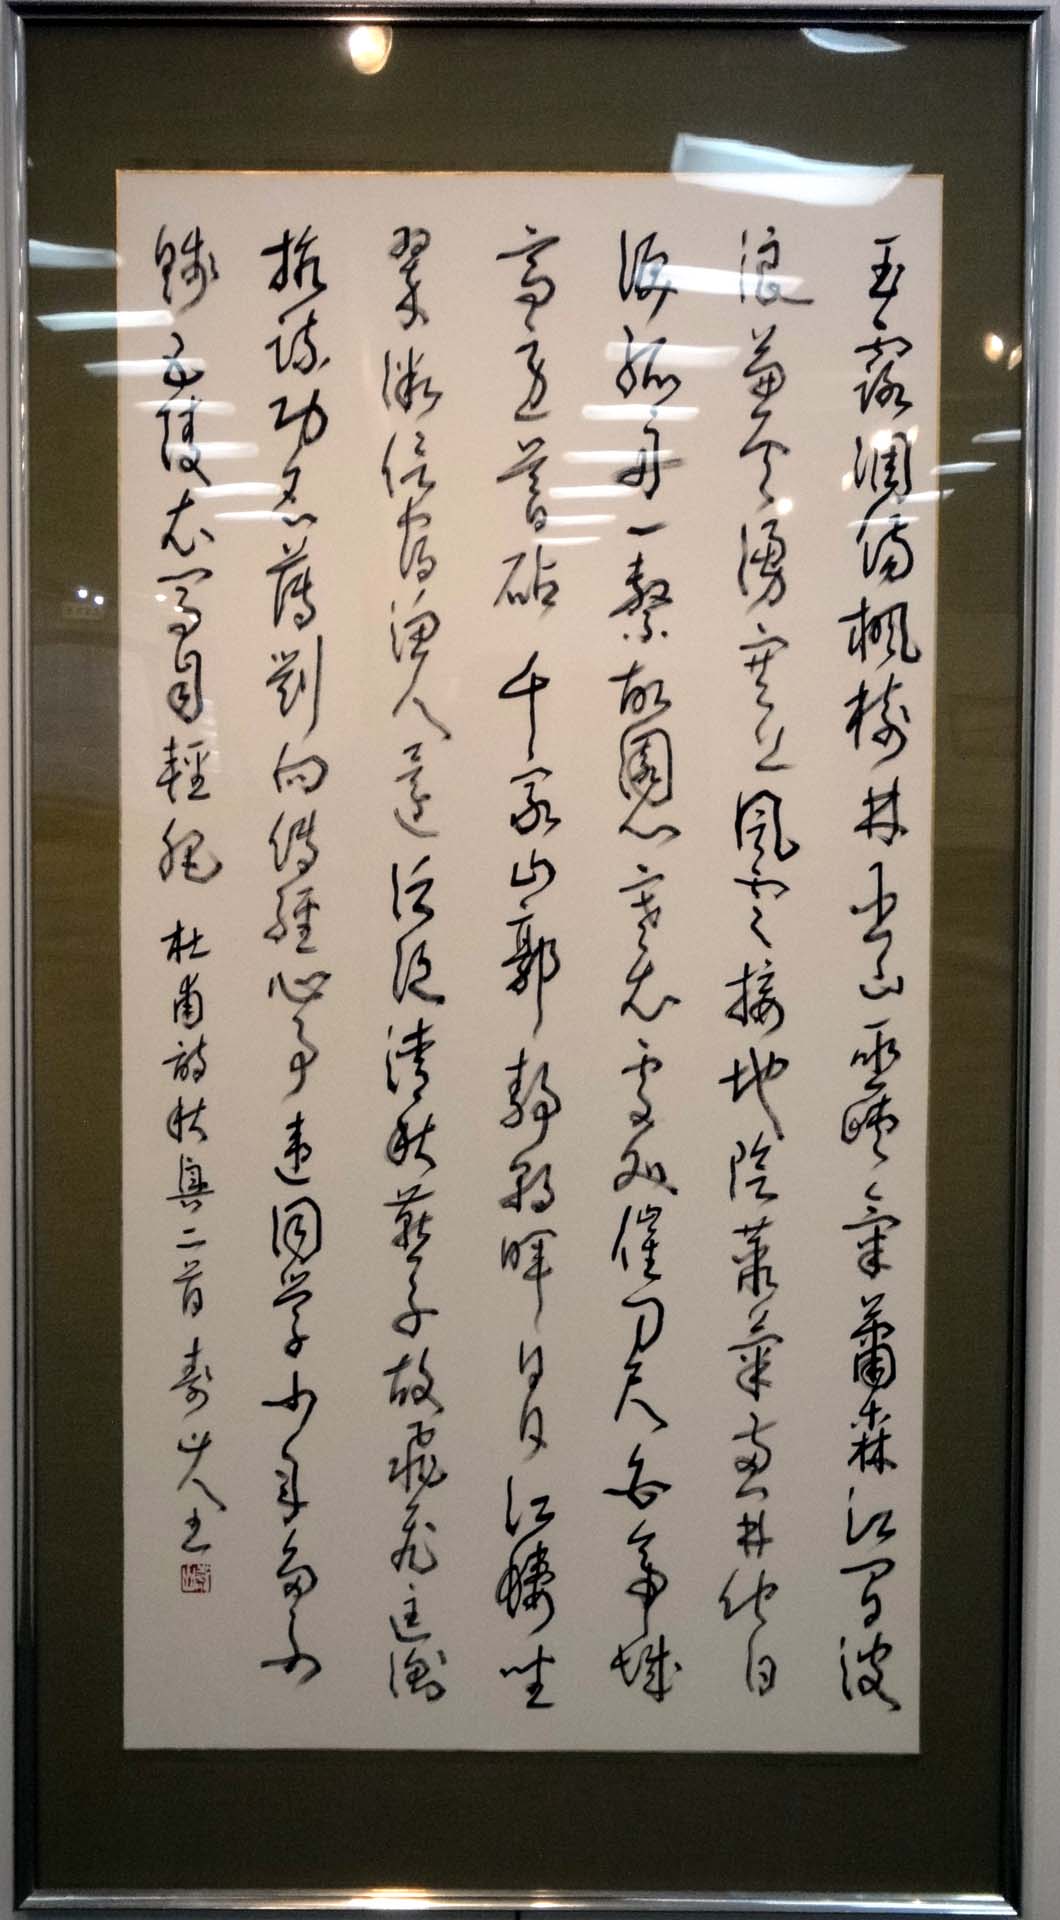 玉露凋傷楓樹林巫山巫峽氣蕭森江間波
浪兼天湧塞上風雲接地陰叢菊兩開他日
淚孤舟一繫故園心寒衣處處催刀尺白帝城
高急暮砧千家山郭靜朝暉日日江樓坐
翠微信宿漁人還泛泛清秋燕子故飛飛匡衡
抗疏功名薄劉向傳經心事違同學少年多不
賤五陵衣馬自輕肥 杜甫詩秋興二首 壽